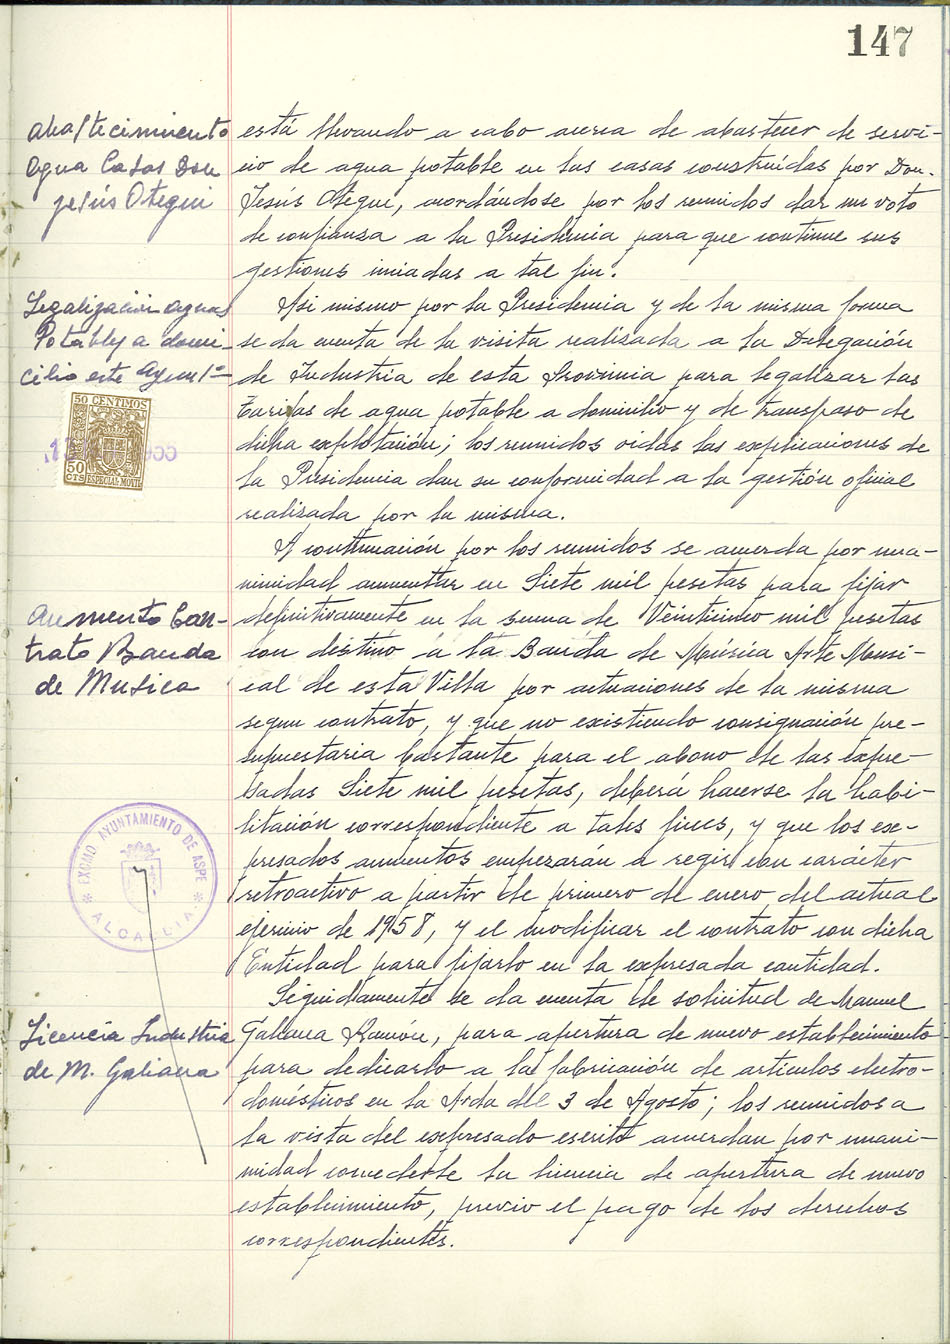 147
Abastecimiento
Agua Casas Don
Jesús Otegui
está llevando a cabo acerca de abastecer de servi-
cio de agua potable en las casas construídas por Don.
Jesús Otegui, acordándose por los reunidos dar un voto
de confianza a la Presidencia para que continue sus
gestiones iniciadas a tal fin.
Legalización aguas
Potables a domi-
cilio este Ayunt.º
50 CENTIMOS
50
CTS ESPECIAL MOVIL
Asi mismo por la Presidencia y de la misma forma
se da cuenta de la visita realizada a la Delegación
de Industria de esta Provincia para legalizar las
tarifas de agua potable a domicilio y de transpaso de
dicha explotación; los reunidos oidas las explicaciones de
la Presidencia dan su conformidad a la gestión oficial
realizada por la misma.
Aumento Con-
trato Banda
de Musica
A continuación por los reunidos se acuerda por una-
nimidad aumentar en Siete mil pesetas para fijar
definitivamente en la suma de Veinticinco mil pesetas
con destino a la Banda de Música Arte Musi-
cal de esta Villa por actuaciones de la misma
segun contrato, y que no existiendo consignación pre-
supuestaria bastante para el abono de las expre-
sadas Siete mil pesetas, deberá hacerse la habi-
litación correspondiente a tales fines, y que los ex-
presados aumentos empezarán a regir con carácter
retroactivo a partir de primero de enero del actual
ejercicio de 1958, y el modificar el contrato con dicha
Entidad para fijarlo en la expresada cantidad.
EXCMO AYUNTAMIENTO DE ASPE
* ALCALDIA *
Licencia Industria
de M. Galiana
Seguidamente se da cuenta de solicitud de Manuel
Galiana Ramón, para apertura de nuevo establecimiento
para dedicarlo a la fabricación de articulos electro-
domésticos en la Avda del 3 de Agosto; los reunidos a
la vista del expresado escrito acuerdan por unani-
midad concederle la licencia de apertura de nuevo
establecimiento, previo el pago de los derechos
correspondientes.